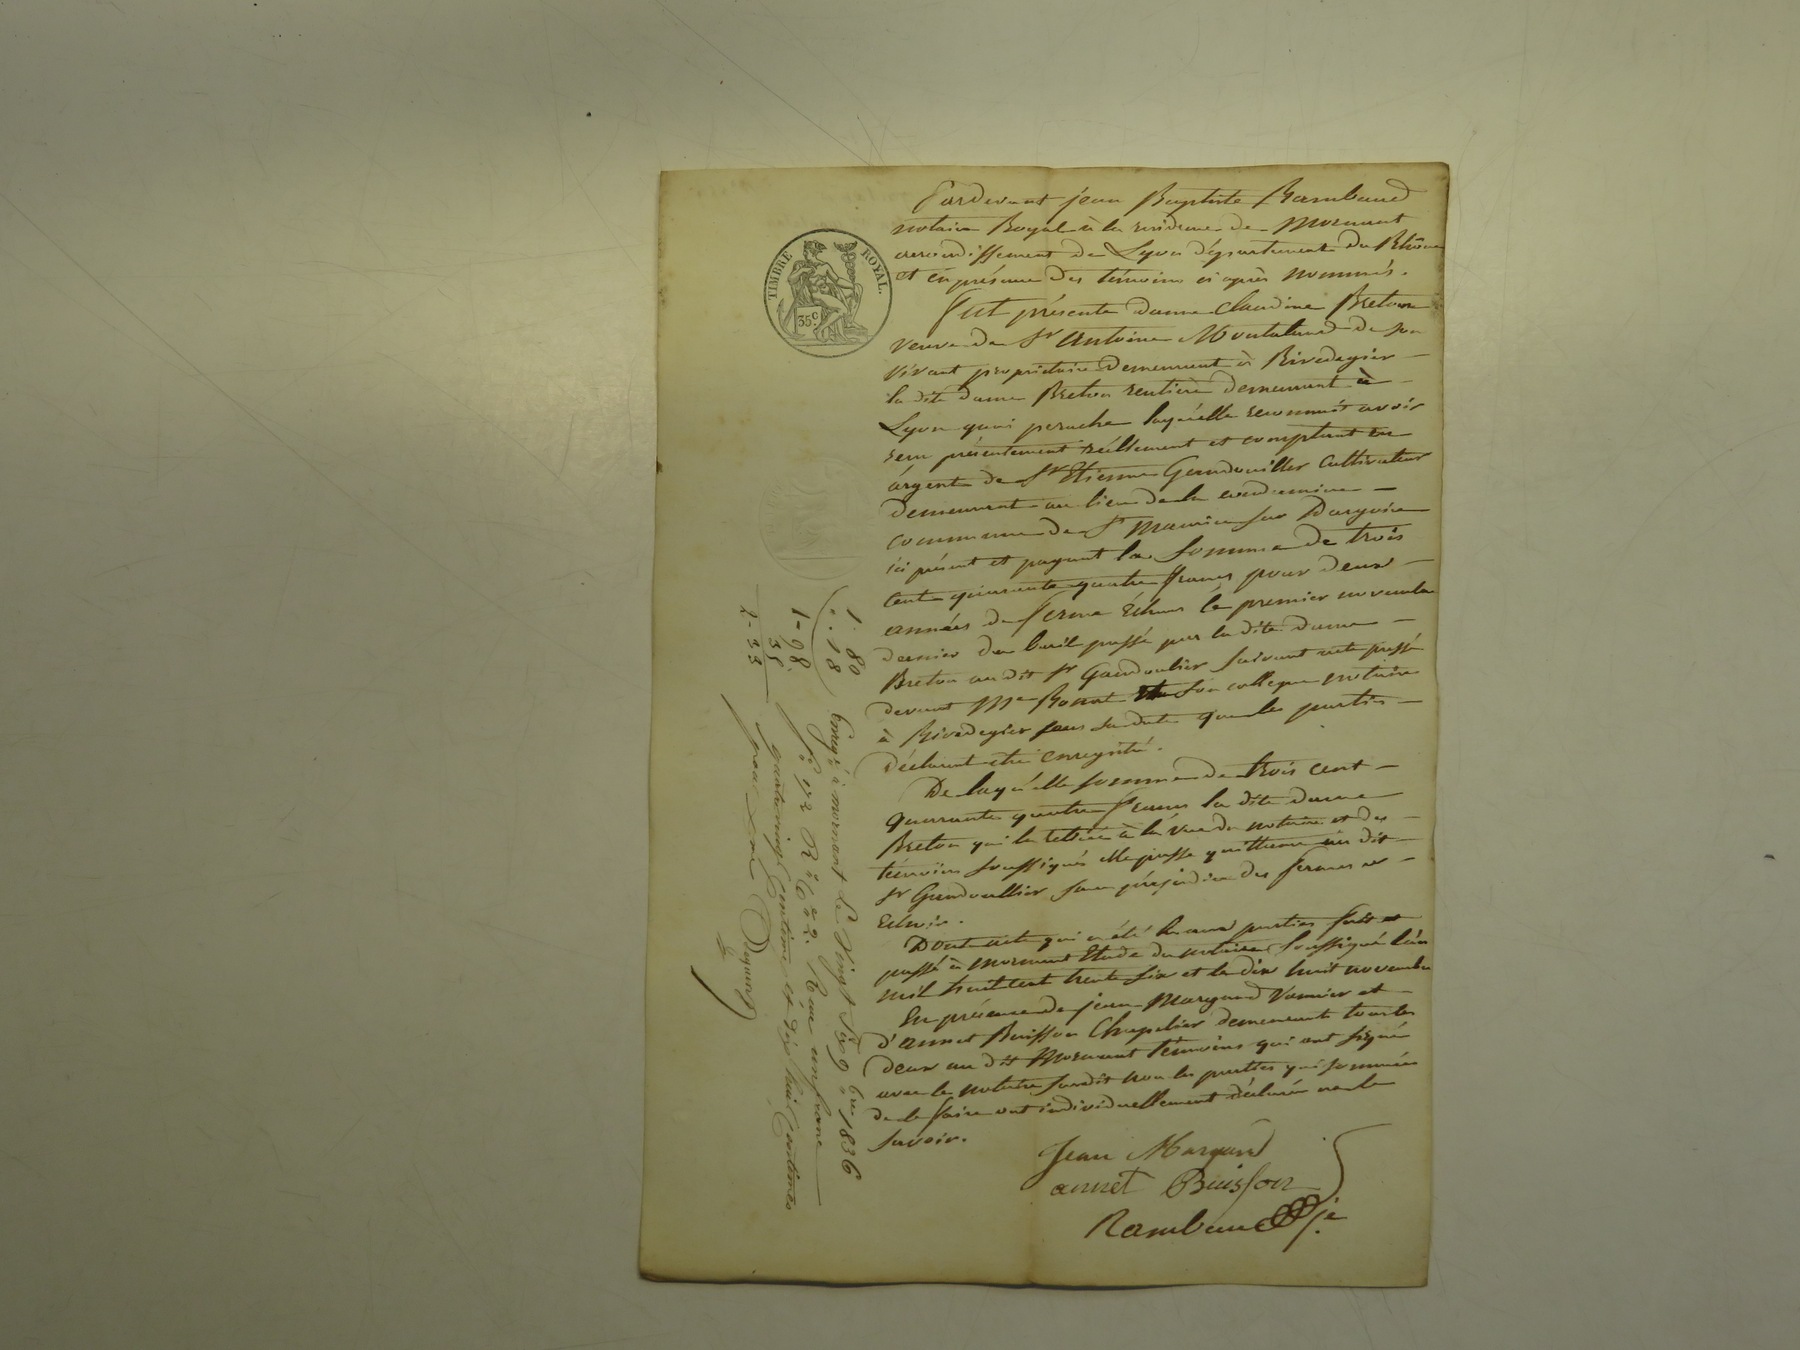 TIMBRE ROYAL.
35 c.
Pardevant jean Baptiste Rambaud
notaire Royal à la residence de Mornant
arrondissement de Lyon département du Rhône
et en présence des témoins ci après nommés.
Fut présente dame Claudine Breton
veuve de Sr Antoine Montaland de son
vivant propriétaire demeurant à Rivedegier
la dite dame Breton rentière demeurant à
Lyon quai perrache laquelle reconnait avoir
reçu présentement réellement et comptant en
argent de Sr Etienne Gaudouiller Cultivateur
demeurant au lieu de la
commune de St Maurice sur Dargoire
ici présent et payant la somme de trois
cent quarante quatre francs pour deux
années de ferme Echues le premier novembre
dernier du bail passé par la dite dame
Breton au dit Sr Gaudoulier suivant acte passé
devant Me Bonnet son collègue notaire
à Rivedegier sous sa date que les parties
déclarent être enregistré.
De laquelle somme de trois cent
quarante quatre francs la dite dame
Breton qui la retirée à la vue du notaire et des
témoins soussignés elle passe quittance au dit
Sr Gaudoullier sans préjudice des fermes a
Echoir.
Dont acte qui a été lu aux parties fait et
passé à Mornant Etude du notaire soussigné l'an
mil huit cent trente six et le dix huit novembre
En présence de jean Margand Vannier et
d'annet Buisson Chapelier demeurant tous les
deux au dit Mornant témoins qui ont signé
avec le notaire susdit non les parties qui sommées
de le faire ont individuellement déclaré ne le
savoir.
Jean Margand
annet Buisson
Rambaud
1. 80
". 18
1-98
35
2-33
Enregé à mornant le Vingt Six 9bre 1836
fo 172 Ro C 2. Reçu un franc
quatrevingt Centimes et dix huit Centimes
pour